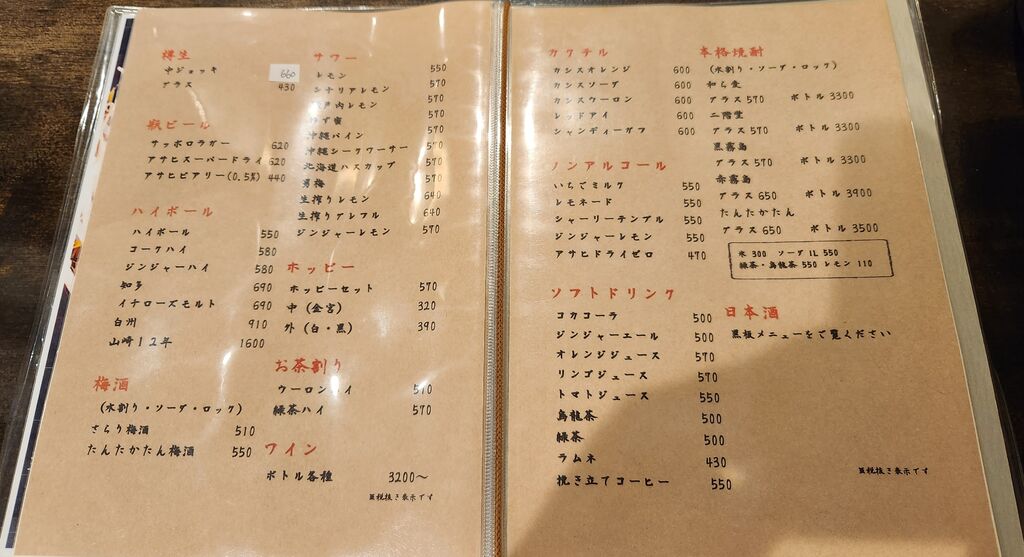 樽生
中ジョッキ 660
グラス 430
瓶ビール
サッポロラガー 620
アサヒスーパードライ 620
アサヒビアリー(0.5%) 440
ハイボール
ハイボール 550
コークハイ 580
ジンジャーハイ 580
知多 690
イチローズモルト 690
白州 910
山崎12年 1600
梅酒
(水割り・ソーダ・ロック)
さらり梅酒 510
たんたかたん梅酒 550
サワー
レモン 550
シチリアレモン 570
戸内レモン 570
ず蜜 570
沖縄パイン 570
沖縄シークワーサー 570
北海道ハスカップ 570
男梅 570
生搾りレモン 640
生搾りアレフル 640
ジンジャーレモン 570
ホッピー
ホッピーセット 570
中(金宮) 320
外(白・黒) 390
お茶割り
ウーロンハイ 570
緑茶ハイ 570
ワイン
ボトル各種 3200～
※税抜き表示です
カクテル
カシスオレンジ 600
カシスソーダ 600
カシスウーロン 600
レッドアイ 600
シャンディーガフ 600
ノンアルコール
いちごミルク 550
レモネード 550
シャーリーテンプル 550
ジンジャーレモン 550
アサヒドライゼロ 470
ソフトドリンク
コカコーラ 500
ジンジャーエール 500
オレンジジュース 570
リンゴジュース 570
トマトジュース 550
烏龍茶 500
緑茶 500
ラムネ 430
挽き立てコーヒー 550
本格焼酎
(水割り・ソーダ・ロック)
和ら麦
グラス 570 ボトル 3300
二階堂
グラス 570 ボトル 3300
黒霧島
グラス 570 ボトル 3300
赤霧島
グラス 650 ボトル 3900
たんたかたん
グラス 650 ボトル 3500
氷 300 ソーダ 1L 550
緑茶・烏龍茶 550 レモン 110
日本酒
黒板メニューをご覧ください
※税抜き表示です